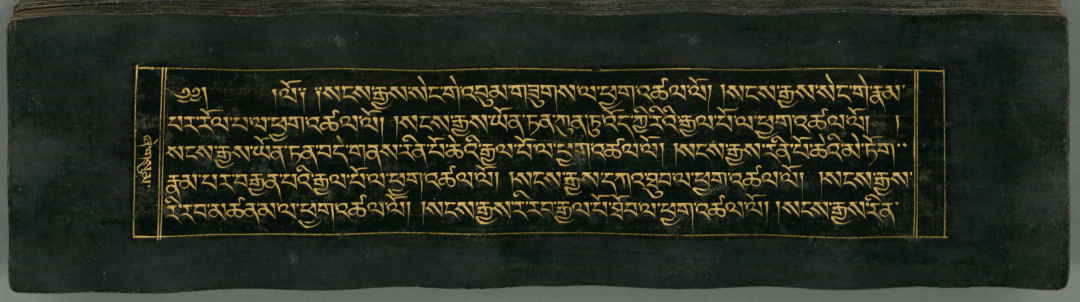 ༄༅། །ལོ༔ ༔སངས་རྒྱས་སེང་གེ་འབུམ་གཟུགས་ལ་ཕྱག་འཚལ་ལོ། །སངས་རྒྱས་སེང་གེ་རྣམ་
པར་རོལ་པ་ལ་ཕྱག་འཚལ་ལོ། །སངས་རྒྱས་ཡོན་ཏན་ཀུན་ཏུ་འོད་ཀྱི་རིའི་རྒྱལ་པོ་ལ་ཕྱག་འཚལ་ལོ། །
སངས་རྒྱས་ཡོན་ཏན་བང་གནས་རིན་པོ་ཆེའི་རྒྱལ་པོ་ལ་ཕྱག་འཚལ་ལོ། །སངས་རྒྱས་རིན་པོ་ཆེའི་མེ་ཏོག་
རྣམ་པར་བརྒྱན་པའི་རྒྱལ་པོ་ལ་ཕྱག་འཚལ་ལོ། །སངས་རྒྱས་དཀའ་ཐུབ་ལ་ཕྱག་འཚལ་ལོ། །སངས་རྒྱས་
རི་རབ་མཚན་མ་ལ་ཕྱག་འཚལ་ལོ། །སངས་རྒྱས་རི་རབ་རྒྱལ་པོ་ཐོབ་ལ་ཕྱག་འཚལ་ལོ། །སངས་རྒྱས་རིན་